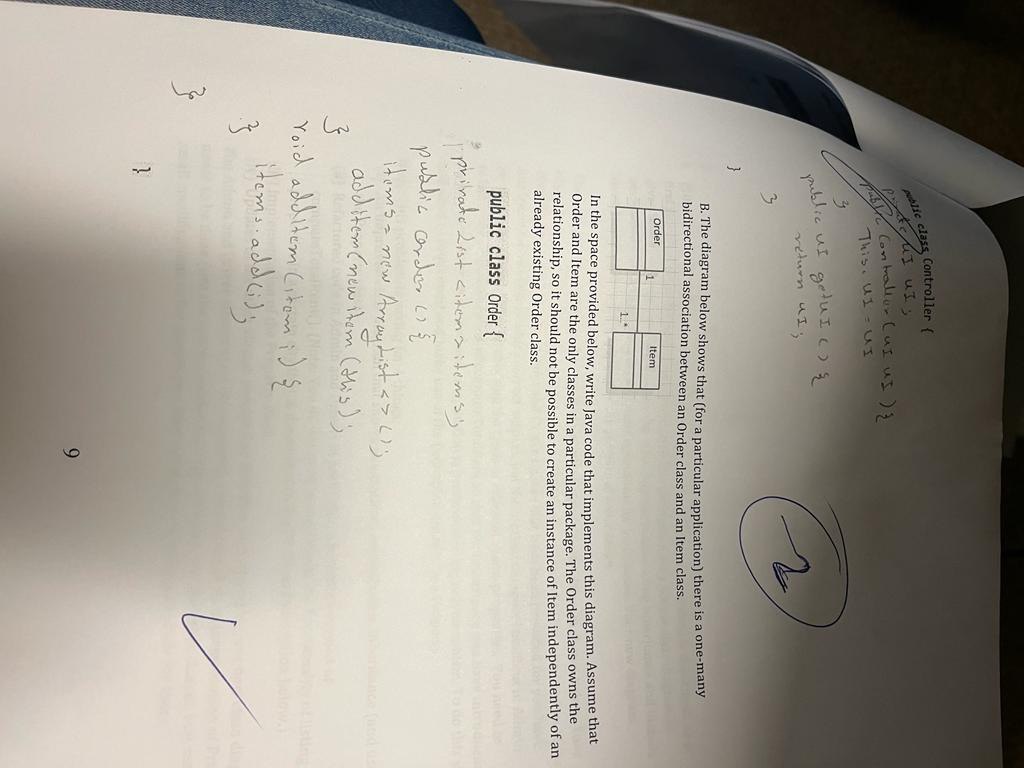 public class Controller {
private UI UI;
public Controller (UI UI) {
This.UI = UI
}
public UI getUI () {
return UI;
}
}
2
B. The diagram below shows that (for a particular application) there is a one-many
bidirectional association between an Order class and an Item class.
Order 1 1..* Item
In the space provided below, write Java code that implements this diagram. Assume that
Order and Item are the only classes in a particular package. The Order class owns the
relationship, so it should not be possible to create an instance of Item independently of an
already existing Order class.
public class Order {
private List <item> items;
public order () {
items = new ArrayList <> ();
addItem (new item (this);
}
void addItem (item i) {
items.add(i);
}
}
}
9